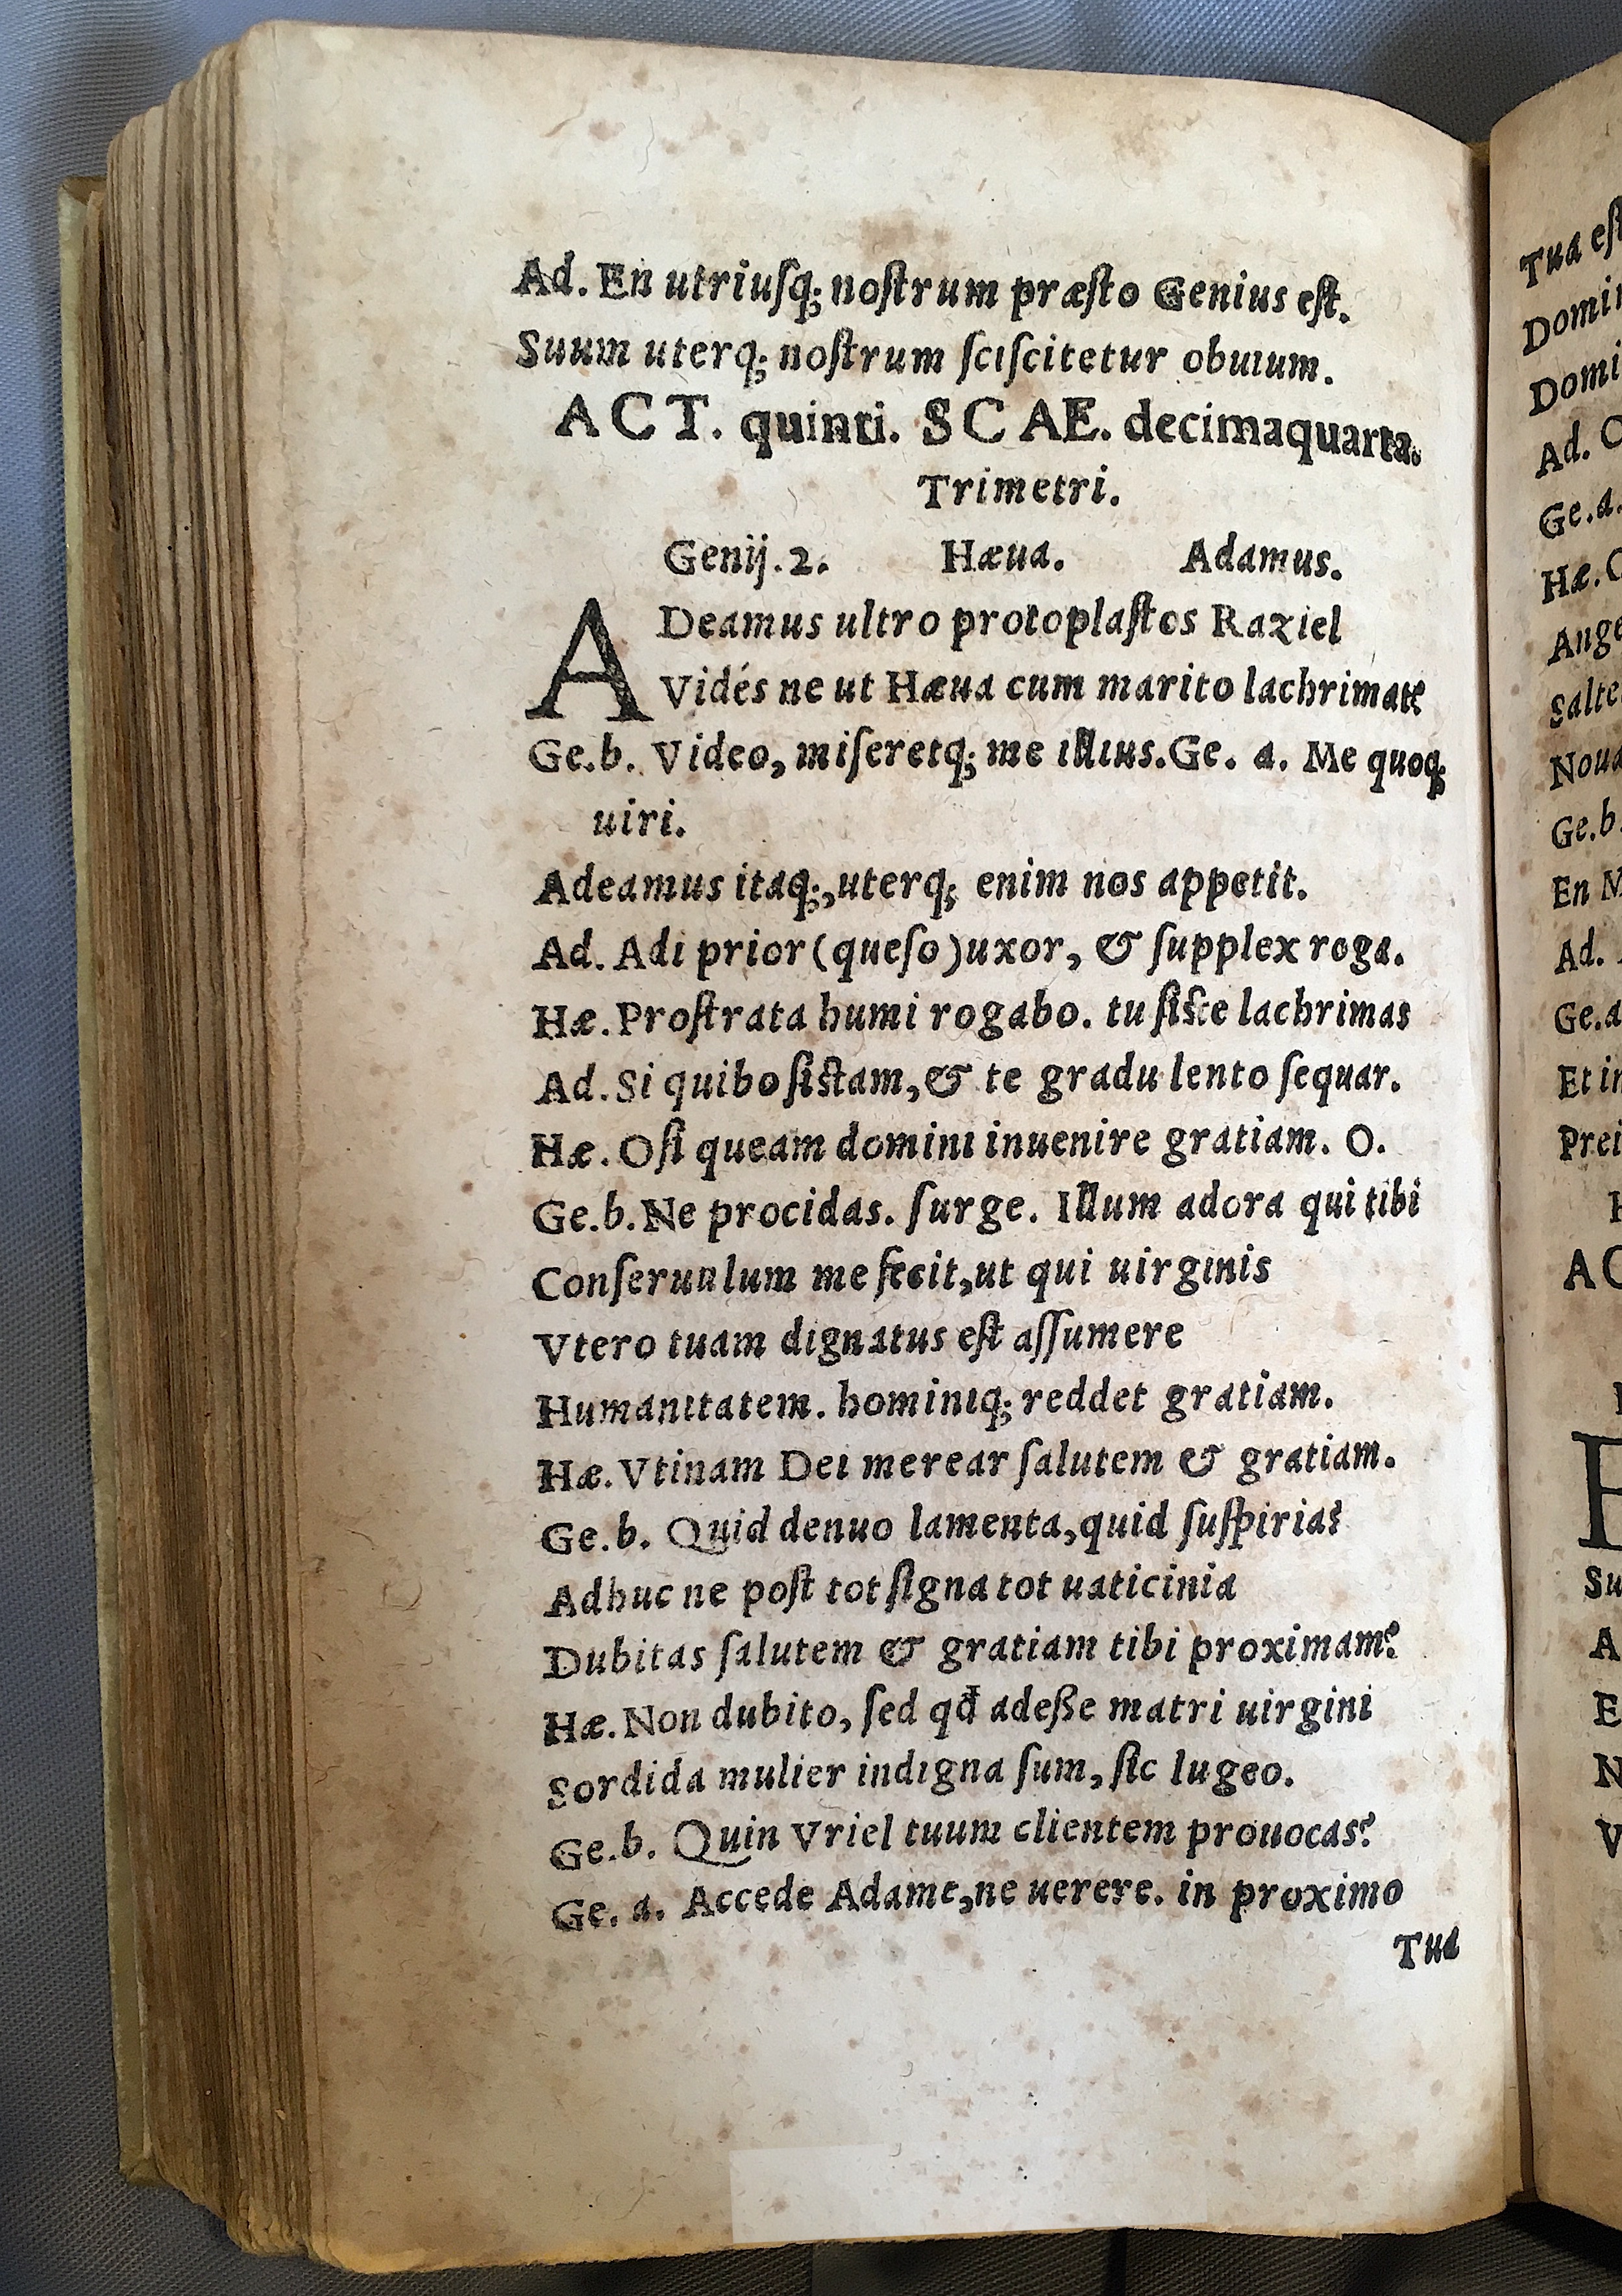 Ad. En utriuſq; noſtrum præſto Genius eſt.
Suum uterq; noſtrum ſciſcitetur obuium.
ACT. quinti. SCAE. decimaquarta.
Trimetri.
Genij. 2. Hæua. Adamus.
ADeamus ultro protoplaſtos Raziel
Vidés ne ut Hæua cum marito lachrimat?
Ge.b. Video, miſeretq; me illius. Ge. a. Me quoq;
uiri.
Adeamus itaq;, uterq; enim nos appetit.
Ad. Adi prior (queſo) uxor, & ſupplex roga.
Hæ. Proſtrata humi rogabo. tu ſiſte lachrimas
Ad. Si quibo ſiſtam, & te gradu lento ſequar.
Hæ. O ſi queam domini inuenire gratiam. O.
Ge.b. Ne procidas. ſurge. Illum adora qui tibi
Conſeruulum me fecit, ut qui uirginis
Vtero tuam dignatus eſt aſſumere
Humanitatem. hominiq; reddet gratiam.
Hæ. Vtinam Dei merear ſalutem & gratiam.
Ge.b. Quid denuo lamenta, quid ſuſpirias?
Adhuc ne poſt tot ſigna tot uaticinia
Dubitas ſalutem & gratiam tibi proximam?
Hæ. Non dubito, ſed qđ adeſſe matri uirgini
Sordida mulier indigna ſum, ſic lugeo.
Ge.b. Quin Vriel tuum clientem prouocas?
Ge. a. Accede Adame, ne uerere. in proximo
Tua
Tua
Ad.
Ge.a.
Hæ.
Ge.b.
En
Ad.
Ge.a